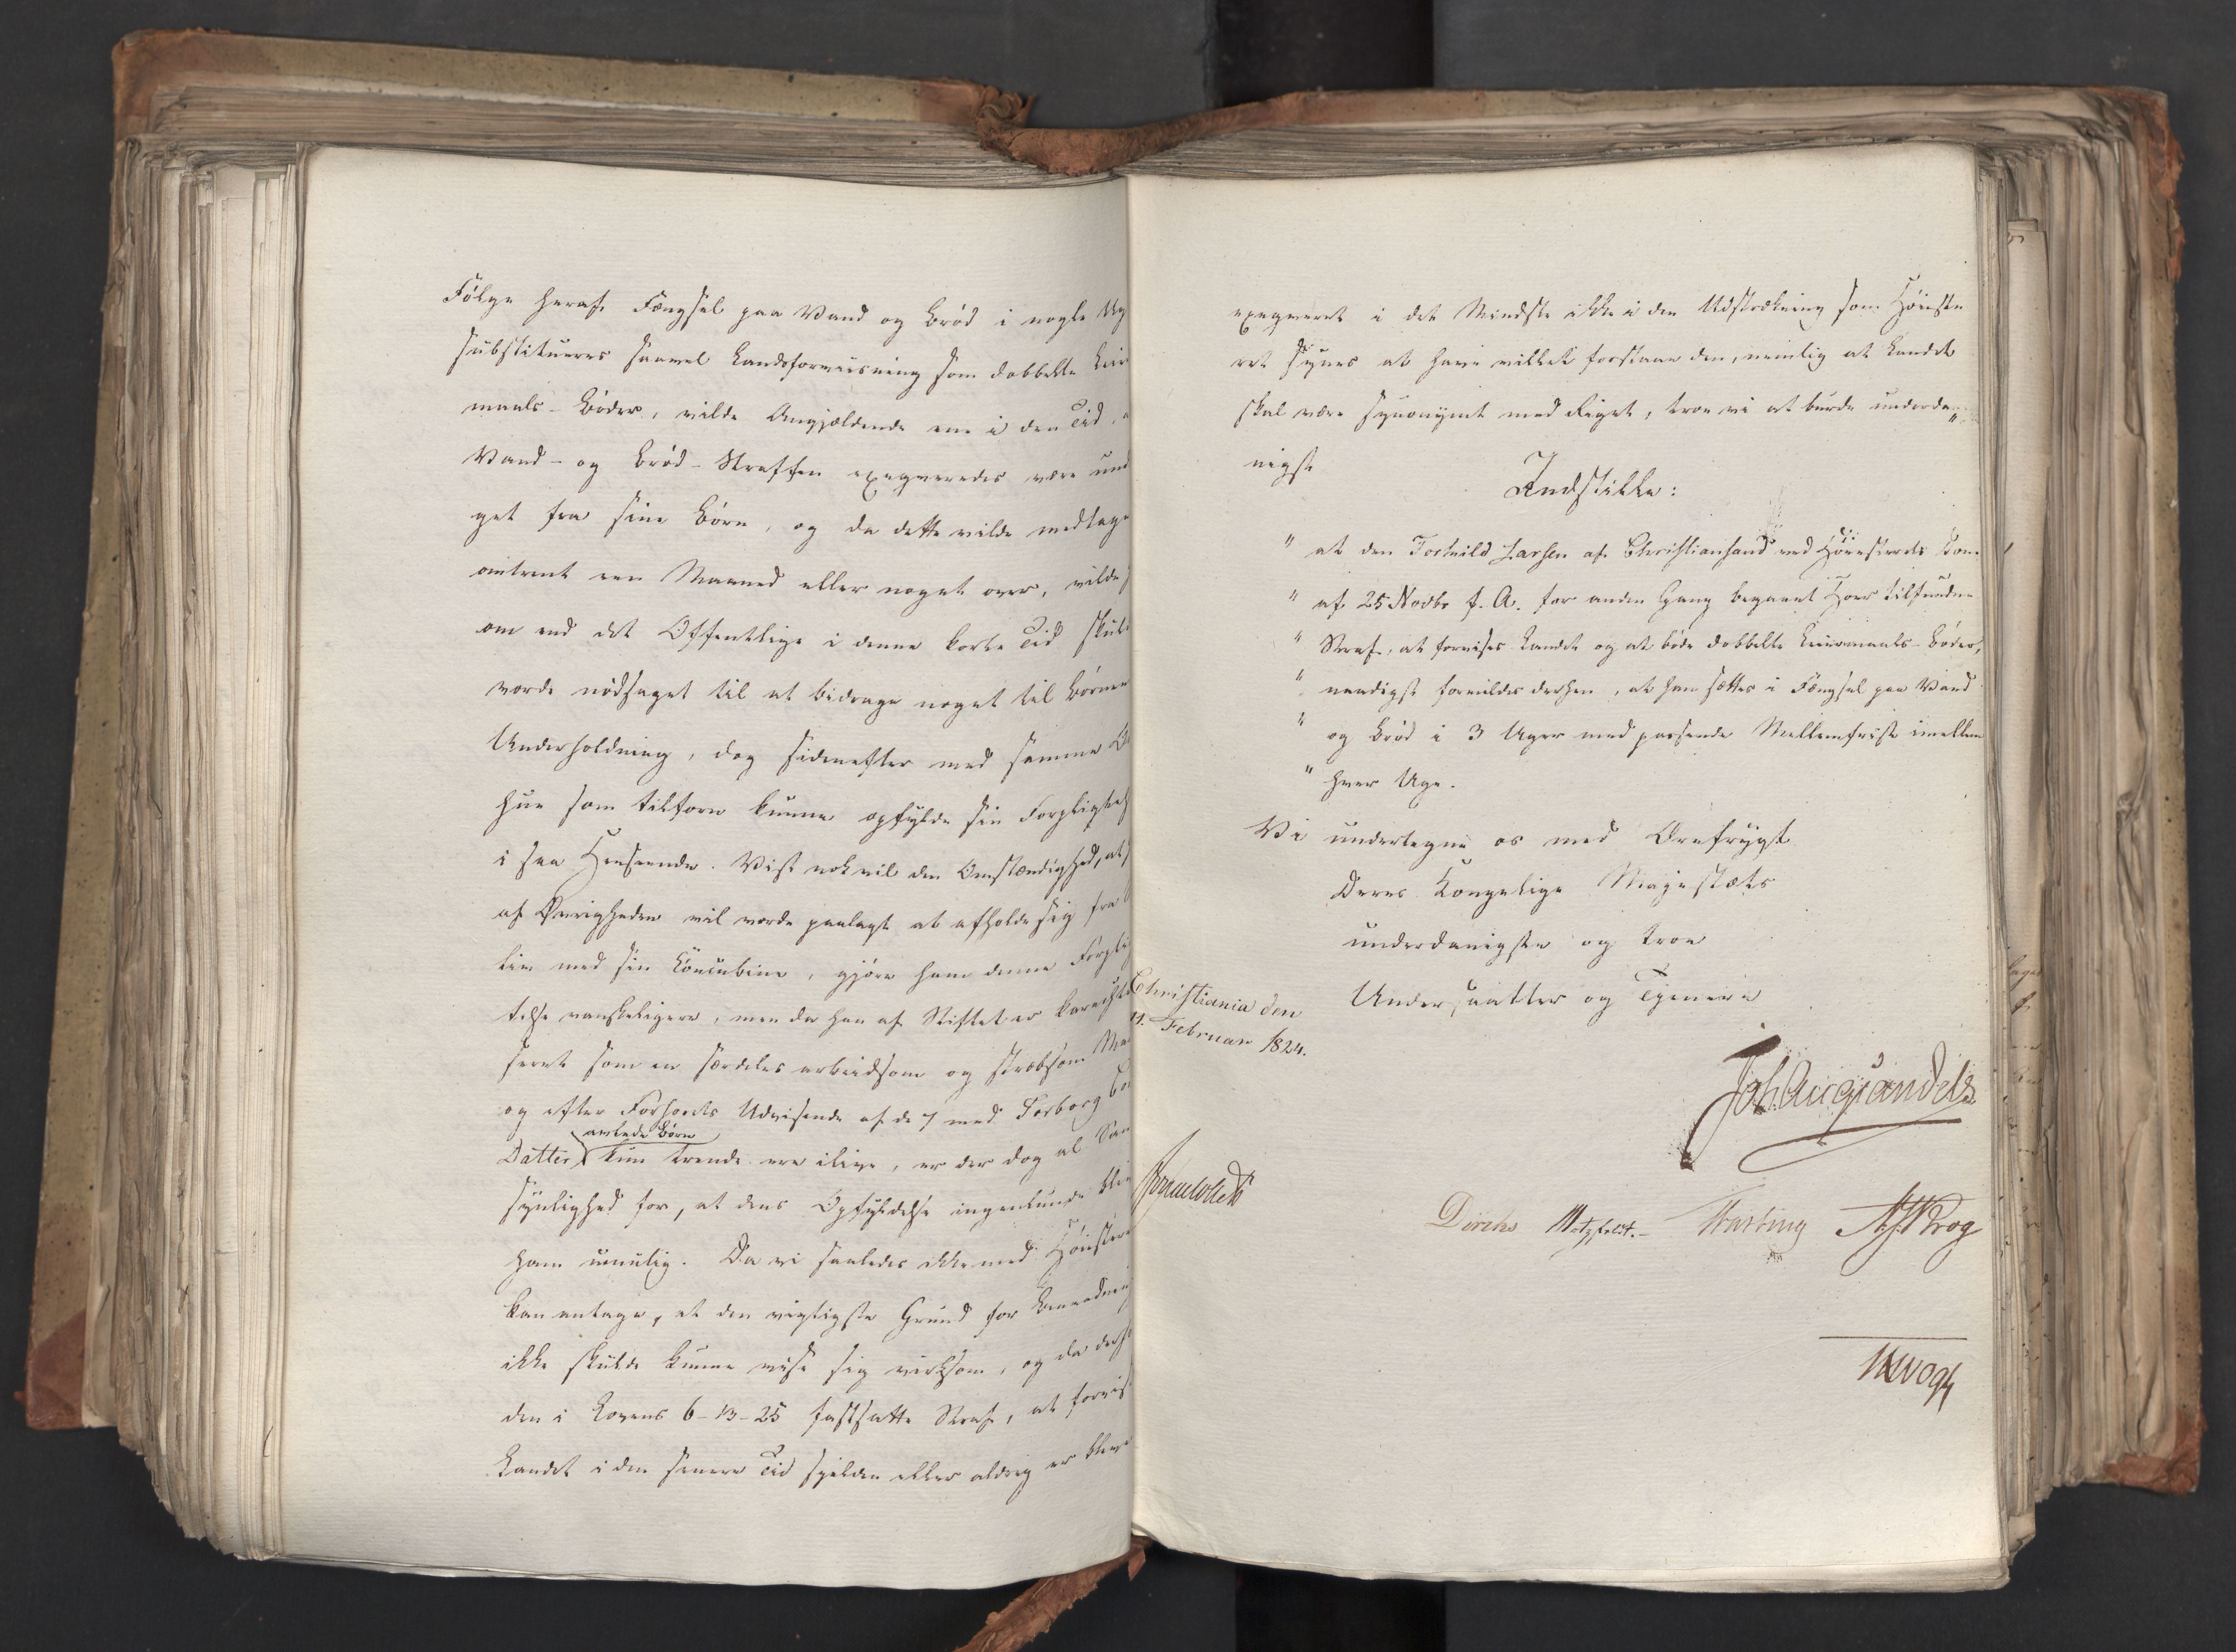 Følge heraf Fængsel paa Vand og Brød i nogle Ug
substitueres saavel Landsforviisning som dobbelte Leier
maals-Bøder, vilde Angjældende ene i den Tid,
Vand- og Brød-Straffen exeqveredes være und
get fra sine Børn, og da dette vilde medtage
omtrent een Maaned eller noget over, vilde
om end det Offentlige i denne korte Tid skul
vorde nødsaget til at bidrage noget til Børnen
Underholdning, dog sidenefter med samme
hun som tilforn kunne opfylde sin Forpligtel
i saa Henseende. Vist nok vil den Omstændighed, at
af Øvrigheden vil vorde paalagt at afholde sig fra
liv med sin Concubine, gjøre ham denne Forpli
telse vanskeligere, men da han af Stiftet er karakte
seret som en særdeles arbeidsom og stræbsom Ma
og efter Forhørets Udvisende af de 7 med Torborg
avlede Børn
Datter kun trende ere ilive, er der dog al San
synlighed for, at dens Opfyldelse ingenlunde bli
ham umulig. Da vi saaledes ikke med Høiestere
kan antage, at den vigtigste Grund for Benaadning
ikke skulde kunne vise sig virksom, og da derh
den i Lovens 6-13-25 fastsatte Straf, at forvis
Landet i den senere Tid sjelden eller aldrig er bleve
exeqveret i det Mindste ikke i den Udstrækning som Høieste
ret synes at have villet forstaae den, nemlig at Landet
skal være synonymt med Riget, troe vi at burde underda
nigst
Indstille:
" at den Torkild Larsen af Christiansand ved Høiesterets Dom
" af 25 Novbr f. A. for anden Gang begaaet Hoer tilfundne
" Straf, at forvises Landet og at bøde dobbelte Leiermaals-Bøder,
" naadigst formildes derhen, at han sættes i Fængsel paa Vand
" og Brød i 3 Uger med passende Mellemfrist imellem
" hver Uge.
Vi undertegne os med Ærefrygt
Deres Kongelige Majestæts
underdanigste og troe
Undersaatter og Tjenere
Christiania den
11. Februar 1824.
Joh Aug Sandels
Sommerhielm
Diriks Motzfeldt. Fasting Krog
Vogt